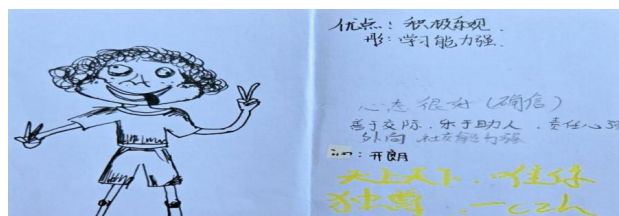 优点：积极乐观.
彤：学习能力强.
心态很好（确信）
善于交际.乐于助人.责任心强
外向 社交能力强
：开朗
天上天下.唯你
独尊.一czh